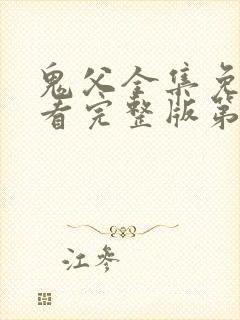 鬼父全集免
看完整版第
江参